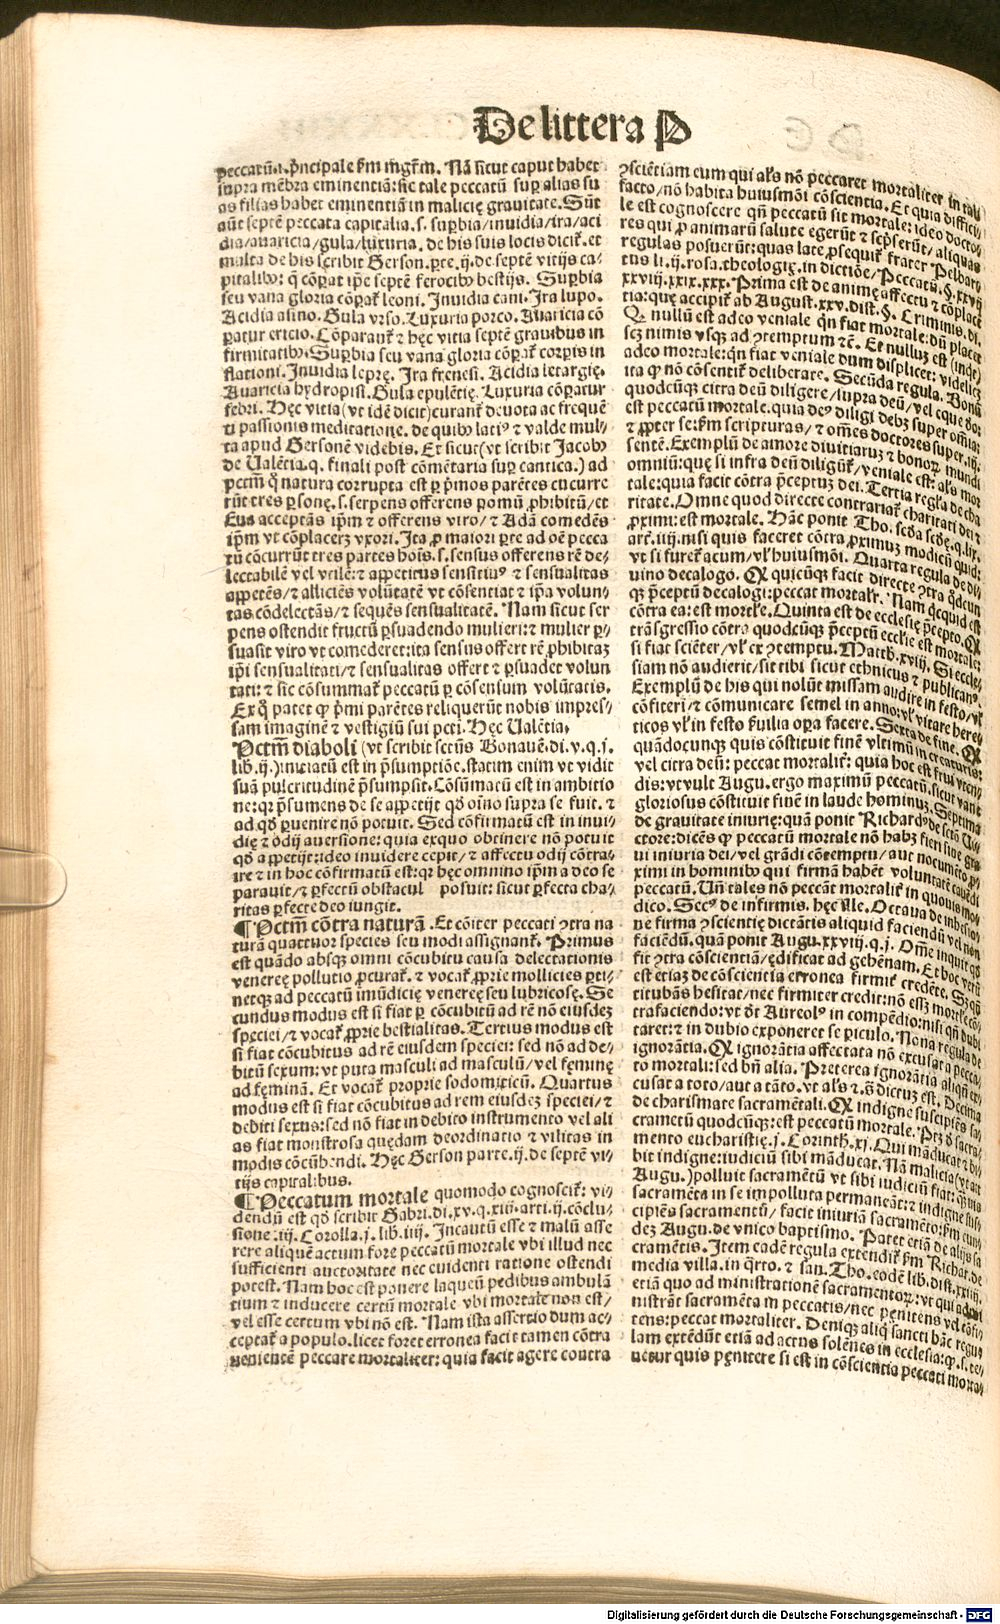 De littera P
peccatū.i. p̄ncipale ẜm mgr̄m. Nā sicut caput habet
supra mēbra eminentiā: sic tale peccatū suꝑ alias su
as filias habet eminentiā in malicię grauitate. Sūt
aūt septē peccata capitalia. s. suꝑbia/inuidia/ira/aci
dia/auaricia/gula/luxuria. de his suis locis dicit̄. et
multa de his scribit Gerson. ꝑte. ij. de septē vitijs ca-
pitalibꝰ: q̄ cōꝑat ip̄e septē ferocibꝰ bestijs. Suꝑbia
seu vana gloria cōꝑat̄ leoni. Inuidia cani. Ira lupo.
Acidia asino. Gula vrso. Luxuria porco. Auaricia cō
ꝑatur ericio. Cōparant̄ ⁊ hęc vitia septē grauibus in
firmitatibꝰ. Suꝑbia seu vana gloria cōꝑat̄ corꝑis in
flationi. Inuidia leprę. Ira frenesi. Acidia letargię.
Auaricia hydropisi. Gula epulētię. Luxuria cōꝑatur
febri. Hęc vitia (vt idē dicit) curant̄ deuota ac frequē
ti passionis meditatione. de quibꝰ latiꝰ ⁊ valde mul/
ta apud Gersonē videbis. Et sicut (vt scribit Jacobꝰ
de Valētia. q. finali post cōmētaria suꝑ cantica.) ad
pctm̄ q̊ natura corrupta est ꝑ p̄mos parētes cucurre
rūt tres ꝑsonę. s. serpens offerens pomū ꝓhibitū/et
Eua acceptās ip̄m ⁊ offerens viro/⁊ Adā comedēs
ip̄m vt cōplacerꝫ vxori. Ita ꝓ maiori ꝑte ad oē pecca
tū cōcurrūt tres partes hoīs. s. sensus offerens rē de-
lectabilē vel vtilē: ⁊ appetitus sensitiuꝰ ⁊ sensualitas
appetēs/⁊ alliciēs volūtatē vt cōsentiat ⁊ ip̄a volun/
tas cōdelectās/⁊ sequēs sensualitatē. Nam sicut ser
pens ostendit fructū ꝑsuadendo mulieri: ⁊ mulier ꝑ-
suasit viro vt comederet: ita sensus offert rē ꝓhibitaꝫ
ip̄i sensualitati/⁊ sensualitas offert ⁊ ꝑsuadet volun
tati: ⁊ sic cōsummat̄ peccatū ꝑ cōsensum volūtatis.
Ex q̊ patet ꝙ p̄mi parētes reliquerūt nobis impres/
sam imaginē ⁊ vestigiū sui pcti. Hęc Valētia.
Pctm̄ diaboli (vt scribit sctūs Bonauē. di. v. q. j.
lib. ij.) iniciatū est in p̄sumptiōe. statim enim vt vidit
suā pulcritudinē p̄sumpsit. Cōsūmatū est in ambitio
ne: qꝛ p̄sumens de se appetijt qđ oīno supra se fuit. ⁊
ad qđ ꝑuenire nō potuit. Sed cōfirmatū est in inui-
dię ⁊ odij auersione: quia exquo obtinere nō potuit
qđ appetijt: ideo inuidere cepit/⁊ affectu odij cōtra-
ire ⁊ in hoc cōfirmatū est: qꝛ hęc omnino ip̄m a deo se
parauit/⁊ ꝑfectū obstacul posuit: sicut ꝑfecta cha-
ritas ꝑfecte deo iungit.
¶ Pctm̄ cōtra naturā. Et cōiter peccati ꝯtra na
turā quattuor species seu modi assignant̄. Primus
est quādo absqꝫ omni cōcubitu causa delectationis
venereę pollutio ꝓcurat̄. ⁊ vocat̄ ꝓprie mollicies ꝑti-
netqꝫ ad peccatū imūdicię venereę seu lubricosę. Se
cundus modus est si fiat ꝑ cōcubitū ad rē nō eiusdeꝫ
speciei/⁊ vocat̄ ꝓprie bestialitas. Tertius modus est
si fiat cōcubitus ad rē eiusdem speciei: sed nō ad de/
bitū sexum: vt puta masculi ad masculū/vel fęminę
ad fęminā. Et vocat̄ proprie sodomiticū. Quartus
modus est si fiat cōcubitus ad rem eiusdeꝫ speciei/⁊
debiti sexus: sed nō fiat in debito instrumento vel ali
as fiat monstrosa quędam deordinatio ⁊ vilitas in
modis cōcūbendi. Hęc Gerson parte. ij. de septē vi/
tijs capitalibus.
¶ Peccatum mortale quomodo cognoscit̄: vi/
dendū est qđ scribit Gabri. di. xv. q. xiij. arti. ij. cōclu/
sione. iij. Corolla. j. lib. iiij. Incautū esse ⁊ malū asse
rere aliquē actum fore peccatū mortale vbi illud nec
sufficienti auctoritate nec euidenti ratione ostendi
potest. Nam hoc est ponere laqueū pedibus ambulā
tium ⁊ inducere certū mortale vbi mortale non est/
vel esse certum vbi nō est. Nam ista assertio dum ac-
ceptat̄ a populo. licet foret erronea facit tamen cōtra
uenientē peccare mortaliter: quia facit agere contra
ꝯsciētiam eum qui al̄s nō peccaret mortaliter in tali
facto/nō habita huiusmōi cōscientia. Et quia diffici/
le est cognoscere qn̄ peccatū sit mortale: ideo docto/
res qui ꝓ animarū salute egerūt ⁊ scp̄serūt/aliquas
regulas posuerūt: quas late ꝓsequit̄ frater Pelbar/
tus li. ij. rosa. theologię. in dictiōe/Peccatū. §. xxvij
xxviij. xxix. xxx. Prima est de animę affectu ⁊ cōplacē
tia: quę accipit̄ ab August. xxv. dist. §. Criminis. di.
Q nullū est adeo veniale qn̄ fiat mortale: dū placet
scꝫ nimis vsqꝫ ad ꝯtemptum ⁊c̄. Et nulluꝫ est (inqt)
adeo mortale: qn̄ fiat veniale dum displicet: videlicꝫ
ita ꝙ nō cōsentit̄ deliberate. Secūda regula. Bonū
quodcūqꝫ citra deū diligere/supra deū/vel eque deo
est peccatū mortale. quia deꝰ diligi debꝫ super omīa:
⁊ ꝓpter se: ẜm scripturas/⁊ om̄es doctores super. iij.
sentē. Exemplū de amore diuitiaruꝫ ⁊ bonoꝝ mundi
omniū: quę si infra deū diligūt̄/veniale est: al̄s mor
tale: quia facit cōtra p̄ceptuꝫ dei. Tertia regl̄a de cha
ritate. Omne quod directe contrariat̄ charitati dei ⁊
ꝓximi: est mortale. Hāc ponit Tho. scđa scđę. q. lix.
art. iiij. nisi quis faceret cōtra ꝓximuꝫ modicū quid:
vt si furet̄ acum/vl̄ huiusmōi. Quarta regula de di/
uino decalogo. Q quicūqꝫ facit directe ꝯtra qđcun
qꝫ p̄ceptū decalogi: peccat mortalr̄. Nam qcquid est
cōtra ea: est mortl̄e. Quinta est de ecclesię p̄cepto. Q
trāsgressio cōtra quodcūqꝫ p̄ceptū eccl̄ie est mortale:
si fiat sciēter/vl̄ ex ꝯtemptu. Matth. xviij. Si eccle/
siam nō audierit/sit tibi sicut ethnicus ⁊ publicanꝰ.
Exemplū de his qui nolūt missam audire in festo/vl̄
cōfiteri/⁊ cōmunicare semel in anno: vl̄ vitare here/
ticos vl̄ in festo ẜuilia oꝑa facere. Sexta de fine. Q
quādocunqꝫ quis cōstituit finē vltimū in creaturis:
vel citra deū: peccat mortalit̄: quia hoc est frui vten/
dis: vt vult Augu. ergo maximū peccatū. sicut vane
gloriosus cōstituit finē in laude hominuꝫ. Septima
de grauitate iniurię: quā ponit Richardꝰ de scto Ui
ctore: dicēs ꝙ peccatū mortale nō habꝫ fieri sine gra
ui iniuria dei/vel grādi cōtemptu/aut nocumēto ꝓ/
ximi in hominibꝰ qui firmā habēt voluntatē cauēdi
peccatū. Un̄ tales nō peccāt mortalit̄ in quouis mo/
dico. Secꝰ de infirmis. hęc ille. Octaua de inhesio/
ne firma ꝯscientię dictātis aliquid faciendū vel non
faciēdū. quā ponit Augu. xxviij. q. j. Om̄e inquit qđ
fit ꝯtra cōscientiā/ędificat ad gehēnam. Et hoc verū
est etiaꝫ de cōscientia erronea firmit̄ credēte. Sꝫ qn̄
titubās hesitat/nec firmiter credit: nō esset mortl̄e cō/
trafaciendo: vt dt̄ Aureolꝰ in compēdio: nisi qn̄ dubi
taret: ⁊ in dubio exponeret se ꝑiculo. Nona regula de
ignorātia. Q ignorātia affectata nō excusat a pecca/
to mortali: sed bn̄ alia. Preterea ignorātia aliqn̄ ex/
cusat a toto/aut a tāto. vt al̄s ⁊. s̄ dictuꝫ est. Decima
de charismate sacramētali. Q indigne suscipiēs sa/
crametū quodcūqꝫ: est peccatū mortale. Ptꝫ đ sacra/
mento eucharistię. j. Corinth. xj. Qui māducat ⁊ bi/
bit indigne: iudiciū sibi māducat. Nā malicia (vt ait
Augu.) polluit sacramētū vt sibi iudiciū fiat: quāuis
sacramēta in se impolluta permaneāt: ⁊ indigne sus/
cipiēs sacramentū/facit iniuriā sacramēto: ẜm eun/
deꝫ Augu. de vnico baptismo. Patet etiā de alijs sa
cramētis. Item eadē regula extendit̄ ẜm Richar. de
media villa. in q̄rto. ⁊ san. Tho. eodē lib. dist. xxiiij.
etiā quo ad ministrationē sacramentoꝝ: vt qui admi
nistrāt sacramēta in peccatis/nec pęnitens vel cōfi/
tens: peccat mortaliter. Deniqꝫ aliq̄ sancti hāc regu
lam extēdūt etiā ad actus solēnes in ecclesia: ꝙ. s. te/
netur quis pęnitere si est in cōscientia peccati morta/
Digitalisierung gefördert durch die Deutsche Forschungsgemeinschaft - DFG